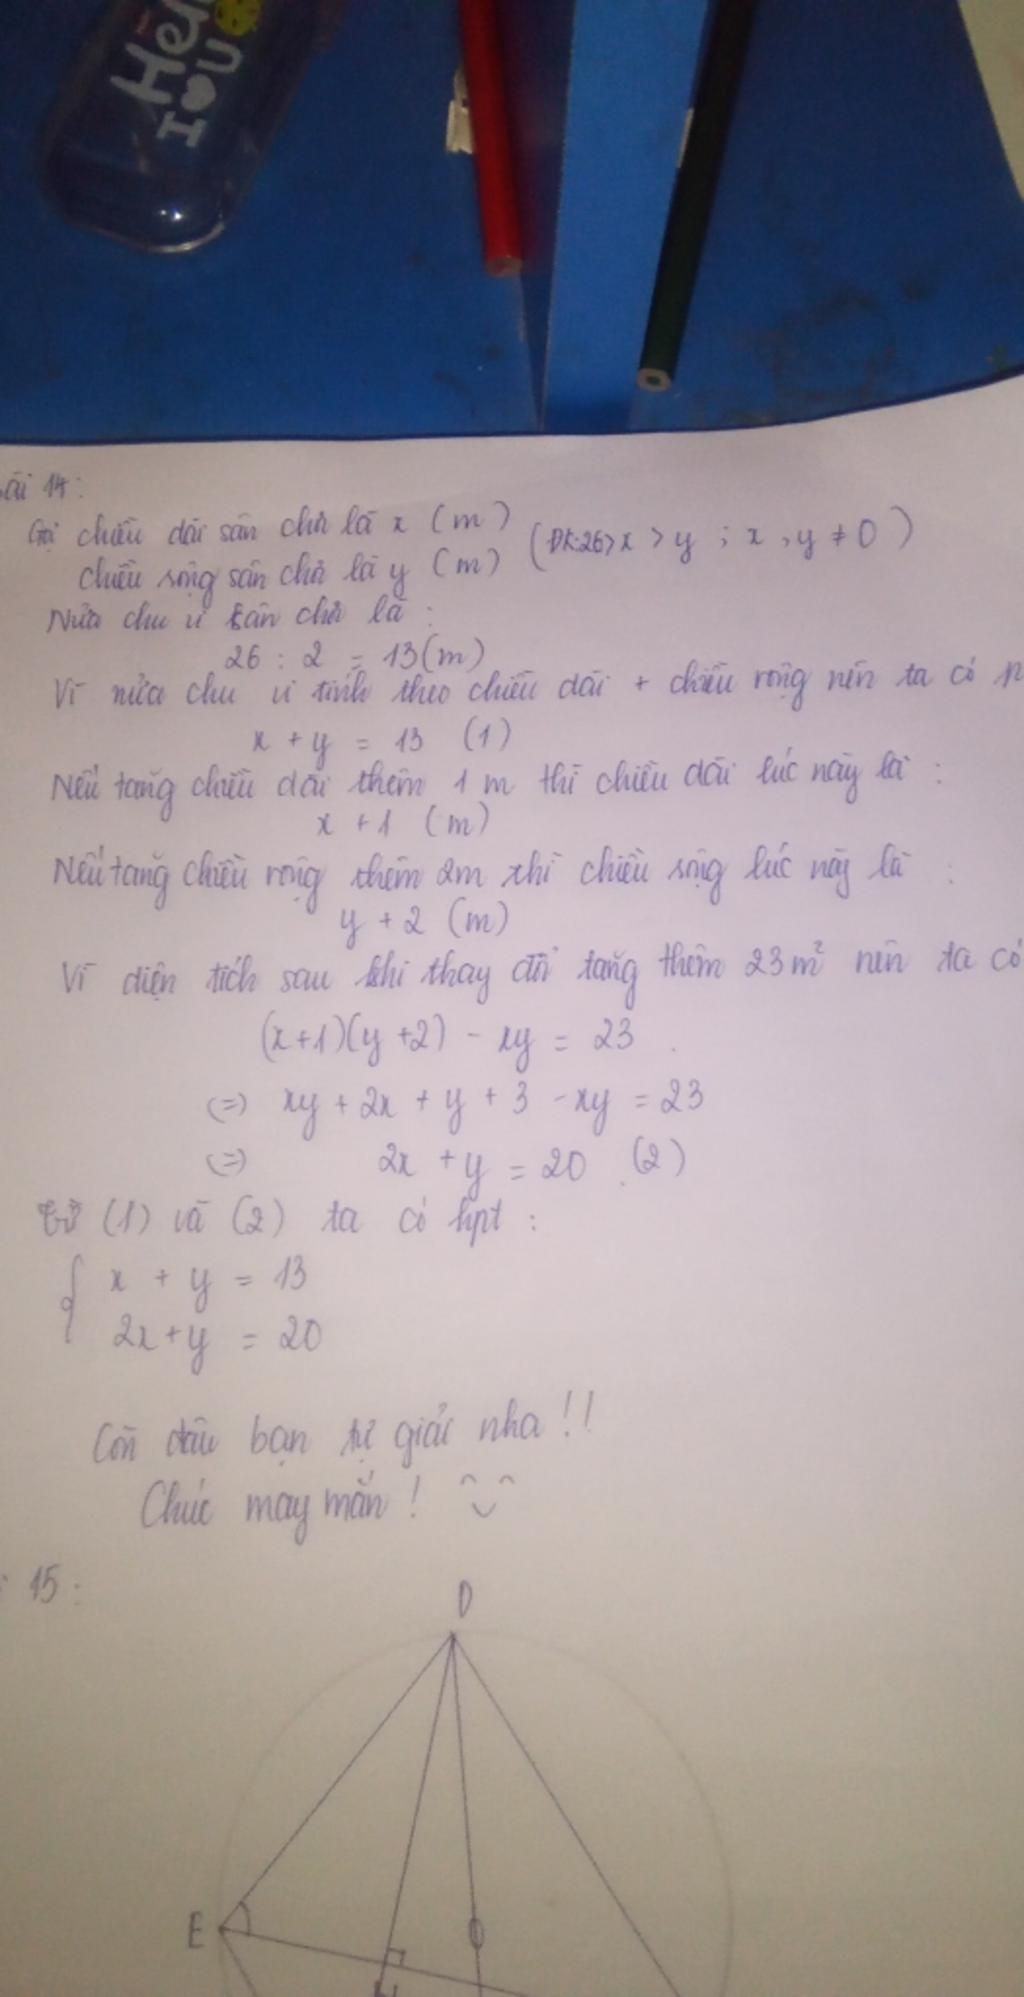 Hel
I U
Bài 14:
Gọi chiều dài sân chơi là x (m)
(ĐK:26>x >y ; x ,y ≠0)
chiều rộng sân chơi là y (m)
Nửa chu vi sân chơi là :
26 : 2 = 13(m)
Vì nửa chu vi tính theo chiều dài + chiều rộng nên ta có
x + y = 13 (1)
Nếu tăng chiều dài thêm 1 m thì chiều dài lúc này là :
x +1 (m)
Nếu tăng chiều rộng thêm 2m thì chiều rộng lúc này là :
y + 2 (m)
Vì diện tích sau khi thay đổi tăng thêm 23m² nên ta có
(x+1)(y+2) - xy = 23
(=) xy + 2x + y + 3 - xy = 23
(=) 2x + y = 20 (2)
Từ (1) và (2) ta có hpt :
{ x + y = 13
2x+y = 20
Còn đâu bạn tự giải nha!!
Chúc may mắn!
15:
D
E
O
H